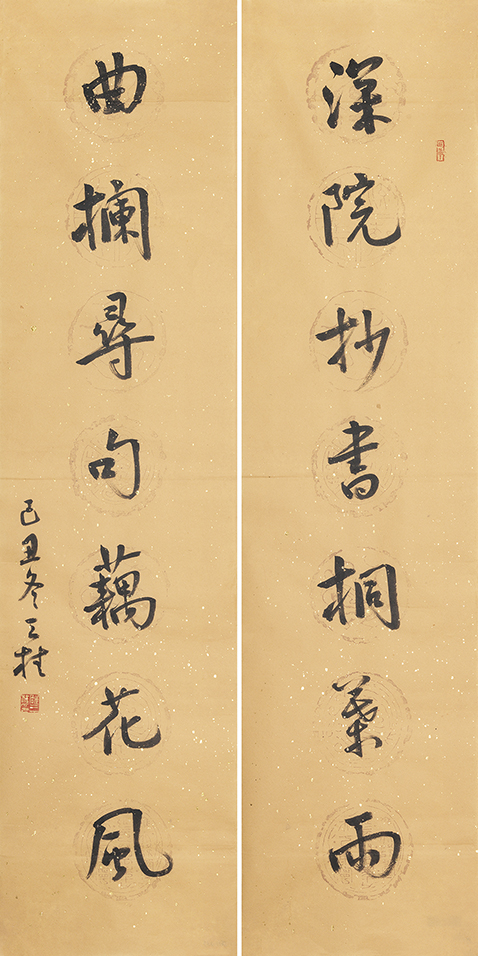 深院抄書桐葉雨
曲欄尋句藕花風
己丑冬 三桂